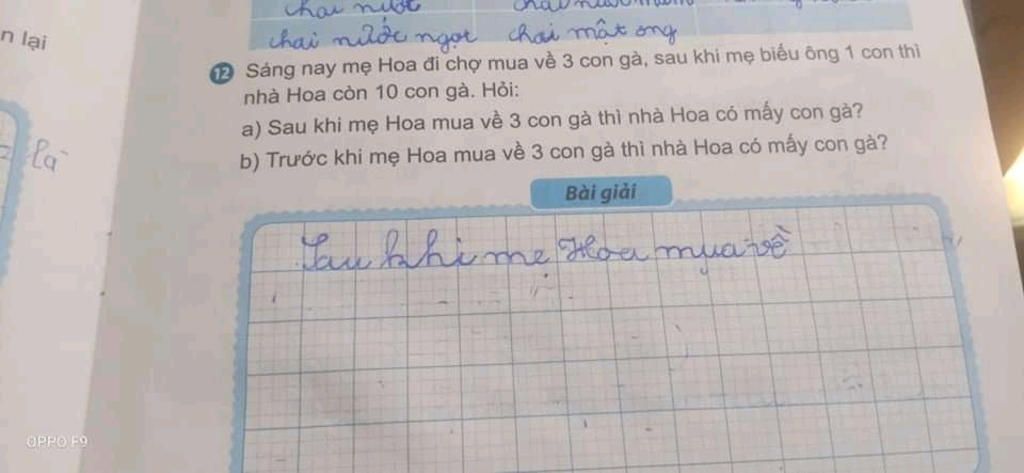 chai nước
n lại
chai nước ngọt chai mật ong
12 Sáng nay mẹ Hoa đi chợ mua về 3 con gà, sau khi mẹ biếu ông 1 con thì
nhà Hoa còn 10 con gà. Hỏi:
a) Sau khi mẹ Hoa mua về 3 con gà thì nhà Hoa có mấy con gà?
là
b) Trước khi mẹ Hoa mua về 3 con gà thì nhà Hoa có mấy con gà?
Bài giải
Sau khi mẹ Hoa mua về
OPPO F9